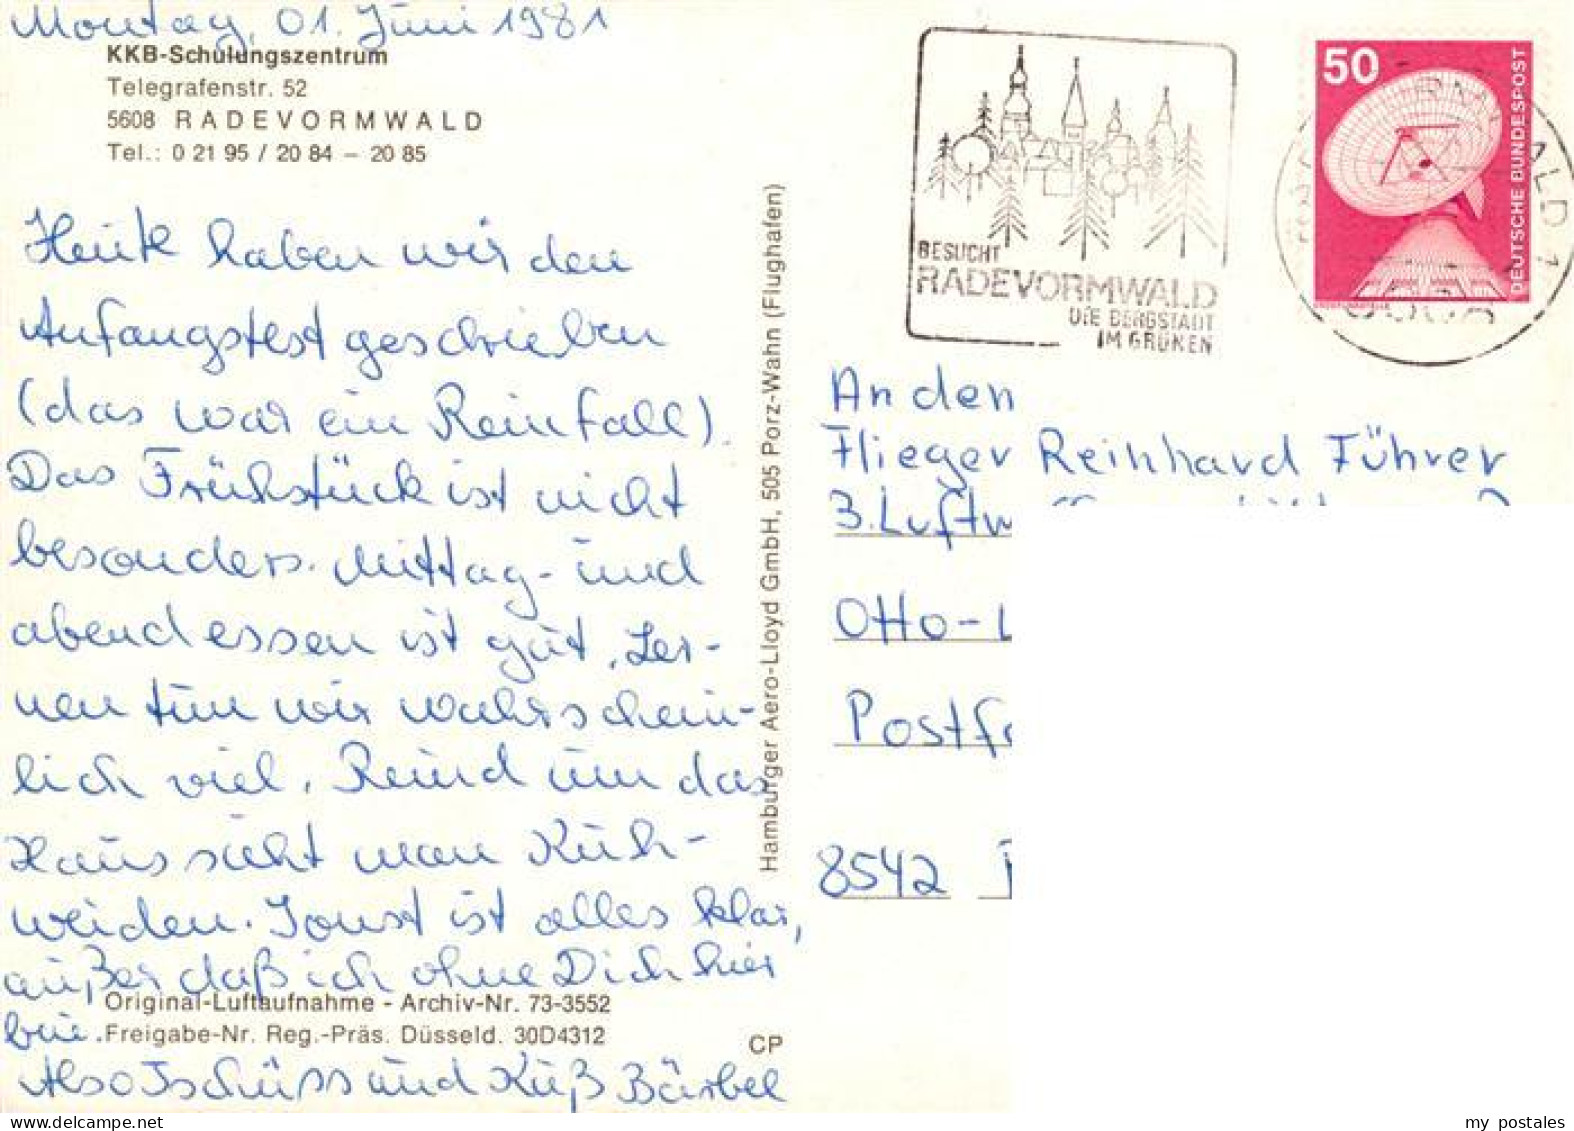 Montag, 01. Juni 1981
KKB-Schulungszentrum
Telegrafenstr. 52
5608 RADEVORMWALD
Tel.: 0 21 95 / 20 84 – 20 85
Heute haben wir den
Anfangstest geschrieben
(das war ein Reinfall).
Das Frühstück ist nicht
besonders. Mittag- und
abendessen ist gut. Ler-
nen tun wir wahrschein-
lich viel. Rund um das
Haus sieht man Küh-
weiden. Sonst ist alles klar,
außer daß ich ohne Dich hier
bin.
Original-Luftaufnahme - Archiv-Nr. 73-3552
Freigabe-Nr. Reg.-Präs. Düsseld. 30D4312
CP
Also Tschüss und Kuß Bärbel
Hamburger Aero-Lloyd GmbH, 505 Porz-Wahn (Flughafen)
BESUCHT
RADEVORMWALD
DIE BERGSTADT
IM GRÜNEN
50
DEUTSCHE BUNDESPOST
An den
Flieger Reinhard Führer
3. Luftw
Otto-
Postf
8542
my postales